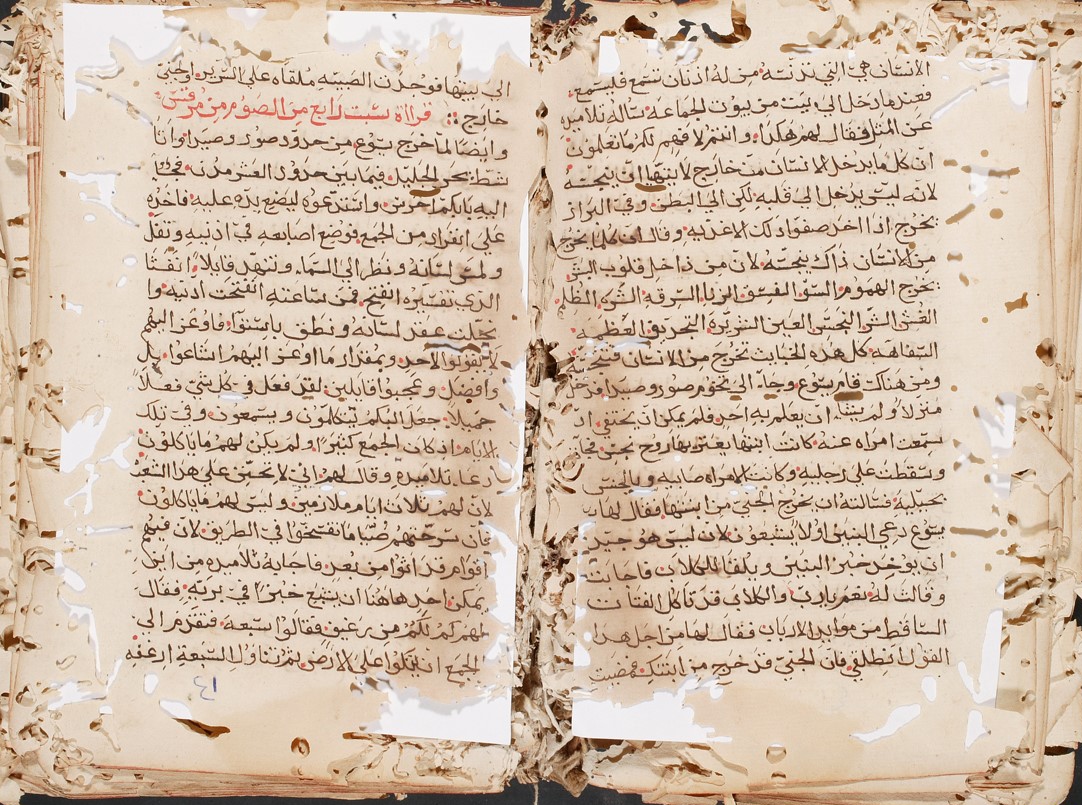 الانسان هي التي تدنسه من له اذنان تسمع فليسمع
فعندما دخل الى بيت من بيوت الجماعة ساله تلاميذه
عن المثل فقال لهم هكذا وانتم لا فهم لكم ما تعلمون
ان كل ما يدخل الانسان من خارج لا ينجسه
لانه ليس يدخل الى قلبه لكن الى البطن وفي البراز
يخرج اذا اخذ صفو تلك الاغذيه وقال ان كل ما يخرج
من الانسان ذاك ينجسه لان من داخل قلوب البشر
تخرج الهموم السو الفسق الزنا السرقه الشره الظلم
الغش الشر النجس العين الشريرة التجديف العظمه
السفاهه كل هذه الخبايث تخرج من الانسان فتنجسه
ومن هناك قام يسوع وجا الى تخوم صور وصيدا فدخل
منزلا ولم يشا ان يعلم به احد فلم يمكن ان يختفي اذ
سمعت امراه عنه كانت ابنتها يعتريها روح نجس فجات
وسقطت على رجليه وكانت الامراه صابيه وبالجنس
فسالته ان يخرج الجني من ابنتها فقال لها
يسوع دعي البنين اولا يشبعون لان ليس هو جيد
ان يوخذ خبز البنين ويلقا للكلاب فاجابت
وقالت له نعم يارب والكلاب قد تاكل الفتات
الساقط من موايد الارباب فقال لها من اجل هذا
القول انطلقي فان الجني قد خرج من ابنتك فمضت
الى بيتها فوجدت الصبيه ملقاه على السرير والجني
خارج قراة سبت رابع من الصوم من مرقس
وايضا لما خرج يسوع من حدود صور وصيدا واتا
شط بحر الجليل فيما بين حدود العشر مدن فجاا
اليه بابكم اخرس واستدعوه ليضع يده عليه فاخذه
على انفراد من الجمع فوضع اصابعه في اذنيه وتفل
ولمس لسانه ونظر الى السما وتنهد قايلا انفتا
الذي تفسيره انفتح فمن ساعته انفتحت اذنيه وا
عقد لسانه ونطق باستوا فاوعز اليهم
لا تقولوا لاحد وبمقدار ما اوعز اليهم اشاعوا بل
وافضل وعجبوا قايلين لقد فعل في كل شي فعلا
جميلا جعل البكم يتكلمون ويسمعون وفي تلك
الايام اذ كان الجمع كثيرا ولم يكن لهم ما ياكلون
دعا تلاميذه وقال لهم اني لاتحنن على هذا الشعب
لان لهم ثلاث ايام ملازمين وليس لهم ما ياكلون
فان سرحتهم صياما تفسخوا في الطريق لان فيهم
اقوام قد اتوا من بعد فاجابه تلاميذه من اين
يمكن احد هاهنا ان يشبع خبزا في بريه فقال
لهم كم لكم من رغيف فقالوا سبعه فتقدم الى
الجمع ان يتكوا على الارض ثم تناول السبعة ارغفه
٤١